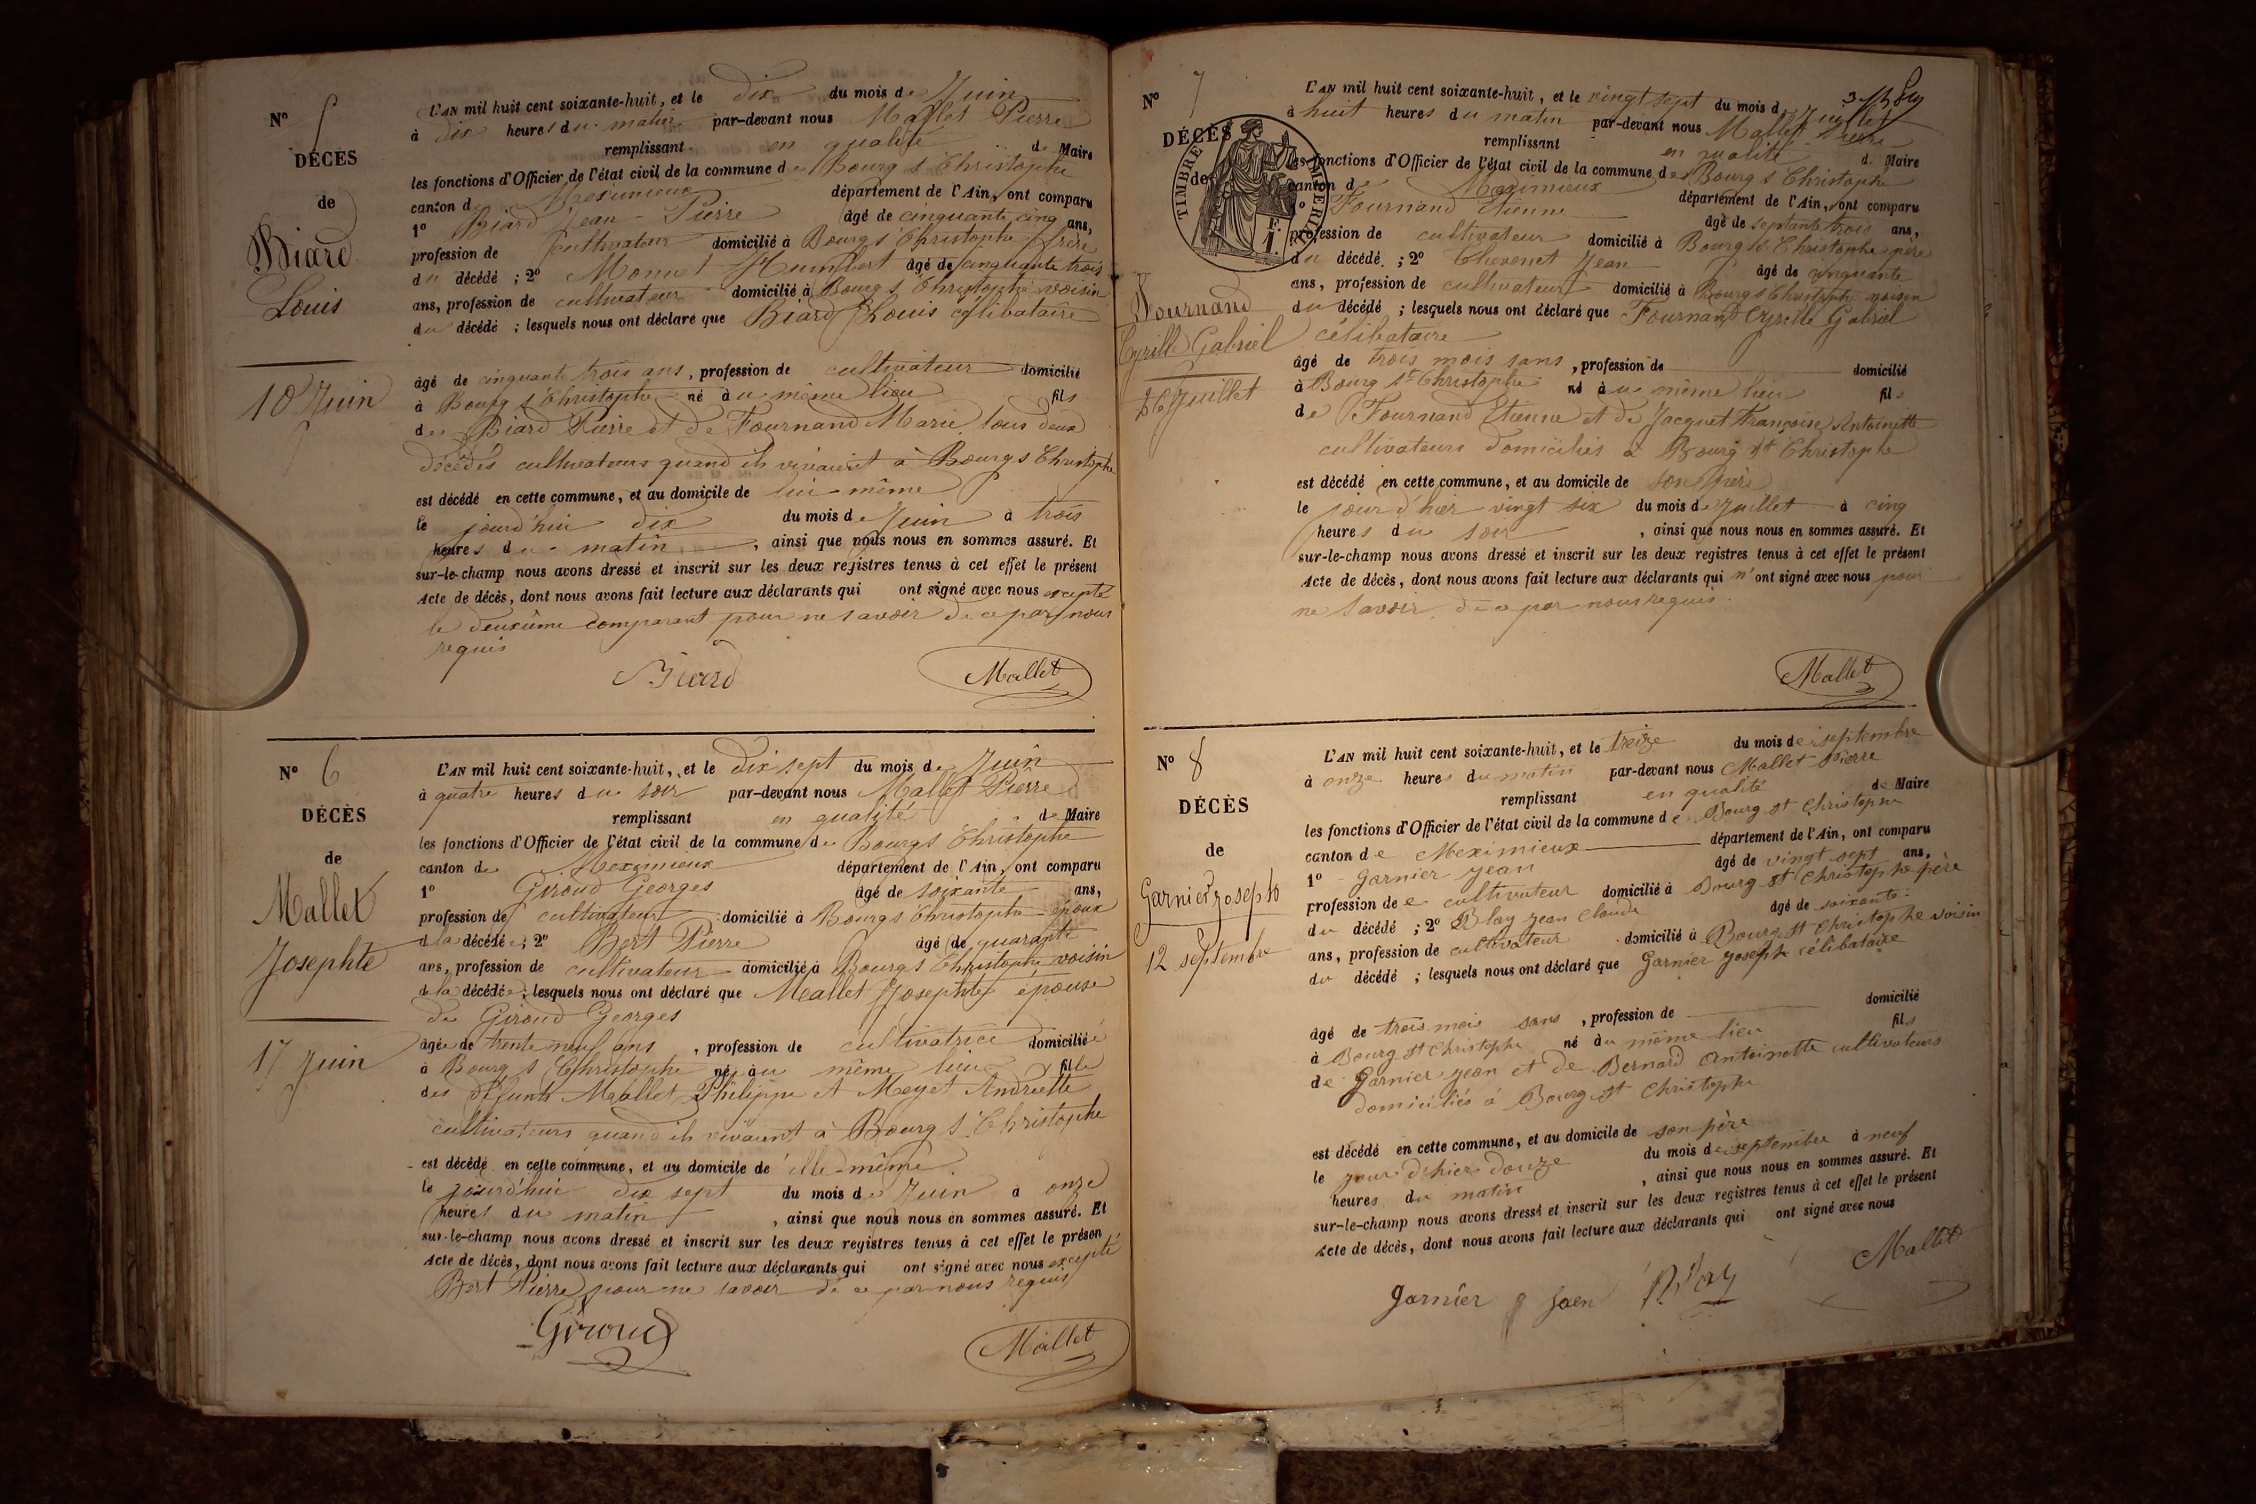 N° 5
DÉCÈS
de
Biard
Louis
10 Juin
L'AN mil huit cent soixante-huit, et le dix du mois de Juin
à dix heures du matin par-devant nous Mallet Pierre
remplissant en qualité de Maire
les fonctions d'Officier de l'état civil de la commune de Bourg St Christophe
canton de Meximieux département de l'Ain, ont comparu
1° Biard Jean-Pierre âgé de cinquante cinq ans,
profession de cultivateur domicilié à Bourg St Christophe frère
du décédé ; 2° Monnet Humbert âgé de cinquante trois
ans, profession de cultivateur domicilié à Bourg St Christophe voisin
du décédé ; lesquels nous ont déclaré que Biard Louis célibataire
âgé de cinquante trois ans, profession de cultivateur domicilié
à Bourg St Christophe né au même lieu fils
de Biard Pierre et de Fournand Marie tous deux
décédés cultivateurs quand ils vivaient à Bourg St Christophe
est décédé en cette commune, et au domicile de lui-même
le jourd'hui dix du mois de Juin à trois
heures du matin, ainsi que nous nous en sommes assuré. Et
sur-le-champ nous avons dressé et inscrit sur les deux registres tenus à cet effet le présent
Acte de décès, dont nous avons fait lecture aux déclarants qui ont signé avec nous excepté
le deuxième comparant pour ne savoir de ce par nous
requis
Biard Mallet
N° 6
DÉCÈS
de
Mallet
Josephte
17 Juin
L'AN mil huit cent soixante-huit, et le dix sept du mois de Juin
à quatre heures du soir par-devant nous Mallet Pierre
remplissant en qualité de Maire
les fonctions d'Officier de l'état civil de la commune de Bourg St Christophe
canton de Meximieux département de l'Ain, ont comparu
1° Giroud Georges âgé de soixante ans,
profession de cultivateur domicilié à Bourg St Christophe époux
de la décédée ; 2° Bert Pierre âgé de quarante
ans, profession de cultivateur domicilié à Bourg St Christophe voisin
de la décédée ; lesquels nous ont déclaré que Mallet Josephte épouse
de Giroud Georges
âgée de trente neuf ans, profession de cultivatrice domiciliée
à Bourg St Christophe née au même lieu fille
des défunts Mallet Philippe et Meyet Andriette
cultivateurs quand ils vivaient à Bourg St Christophe
est décédé en cette commune, et au domicile de elle-même
le jourd'hui dix sept du mois de Juin à onze
heures du matin, ainsi que nous nous en sommes assuré. Et
sur-le-champ nous avons dressé et inscrit sur les deux registres tenus à cet effet le présen
Acte de décès, dont nous avons fait lecture aux déclarants qui ont signé avec nous excepté
Bert Pierre pour ne savoir de ce par nous requis
Giroud Mallet
N° 7
DÉCÈS
de
TIMBRE IMPERIAL
Fournand
Cyrille Gabriel
26 Juillet
L'AN mil huit cent soixante-huit, et le vingt sept du mois de Juillet
à huit heures du matin par-devant nous Mallet Pierre
remplissant en qualité de Maire
les fonctions d'Officier de l'état civil de la commune de Bourg St Christophe
canton de Meximieux département de l'Ain, ont comparu
1° Fournand Etienne âgé de septante trois ans,
profession de cultivateur domicilié à Bourg St Christophe père
du décédé ; 2° Chevenet Jean âgé de cinquante
ans, profession de cultivateur domicilié à Bourg St Christophe voisin
du décédé ; lesquels nous ont déclaré que Fournand Cyrille Gabriel
célibataire
âgé de trois mois sans, profession de domicilié
à Bourg St Christophe né au même lieu fils
de Fournand Etienne et de Jacquet Françoise Antoinette
cultivateurs domiciliés à Bourg St Christophe
est décédé en cette commune, et au domicile de son père
le jour d'hier vingt six du mois de Juillet à cinq
heures du soir, ainsi que nous nous en sommes assuré. Et
sur-le-champ nous avons dressé et inscrit sur les deux registres tenus à cet effet le présent
Acte de décès, dont nous avons fait lecture aux déclarants qui n'ont signé avec nous pour
ne savoir de ce par nous requis.
Mallet
N° 8
DÉCÈS
de
Garnier Joseph
12 septembre
L'AN mil huit cent soixante-huit, et le treize du mois de septembre
à onze heures du matin par-devant nous Mallet Pierre
remplissant en qualité de Maire
les fonctions d'Officier de l'état civil de la commune de Bourg St Christophe
canton de Meximieux département de l'Ain, ont comparu
1° Garnier Jean âgé de vingt sept ans,
profession de cultivateur domicilié à Bourg St Christophe père
du décédé ; 2° Blay Jean Claude âgé de soixante
ans, profession de cultivateur domicilié à Bourg St Christophe voisin
du décédé ; lesquels nous ont déclaré que Garnier Joseph célibataire
âgé de trois mois sans, profession de domicilié
à Bourg St Christophe né au même lieu fils
de Garnier Jean et de Bernard Antoinette cultivateurs
domiciliés à Bourg St Christophe
est décédé en cette commune, et au domicile de son père
le jour d'hier douze du mois de septembre à neuf
heures du matin, ainsi que nous nous en sommes assuré. Et
sur-le-champ nous avons dressé et inscrit sur les deux registres tenus à cet effet le présent
Acte de décès, dont nous avons fait lecture aux déclarants qui ont signé avec nous
Garnier Jaen Blay Mallet